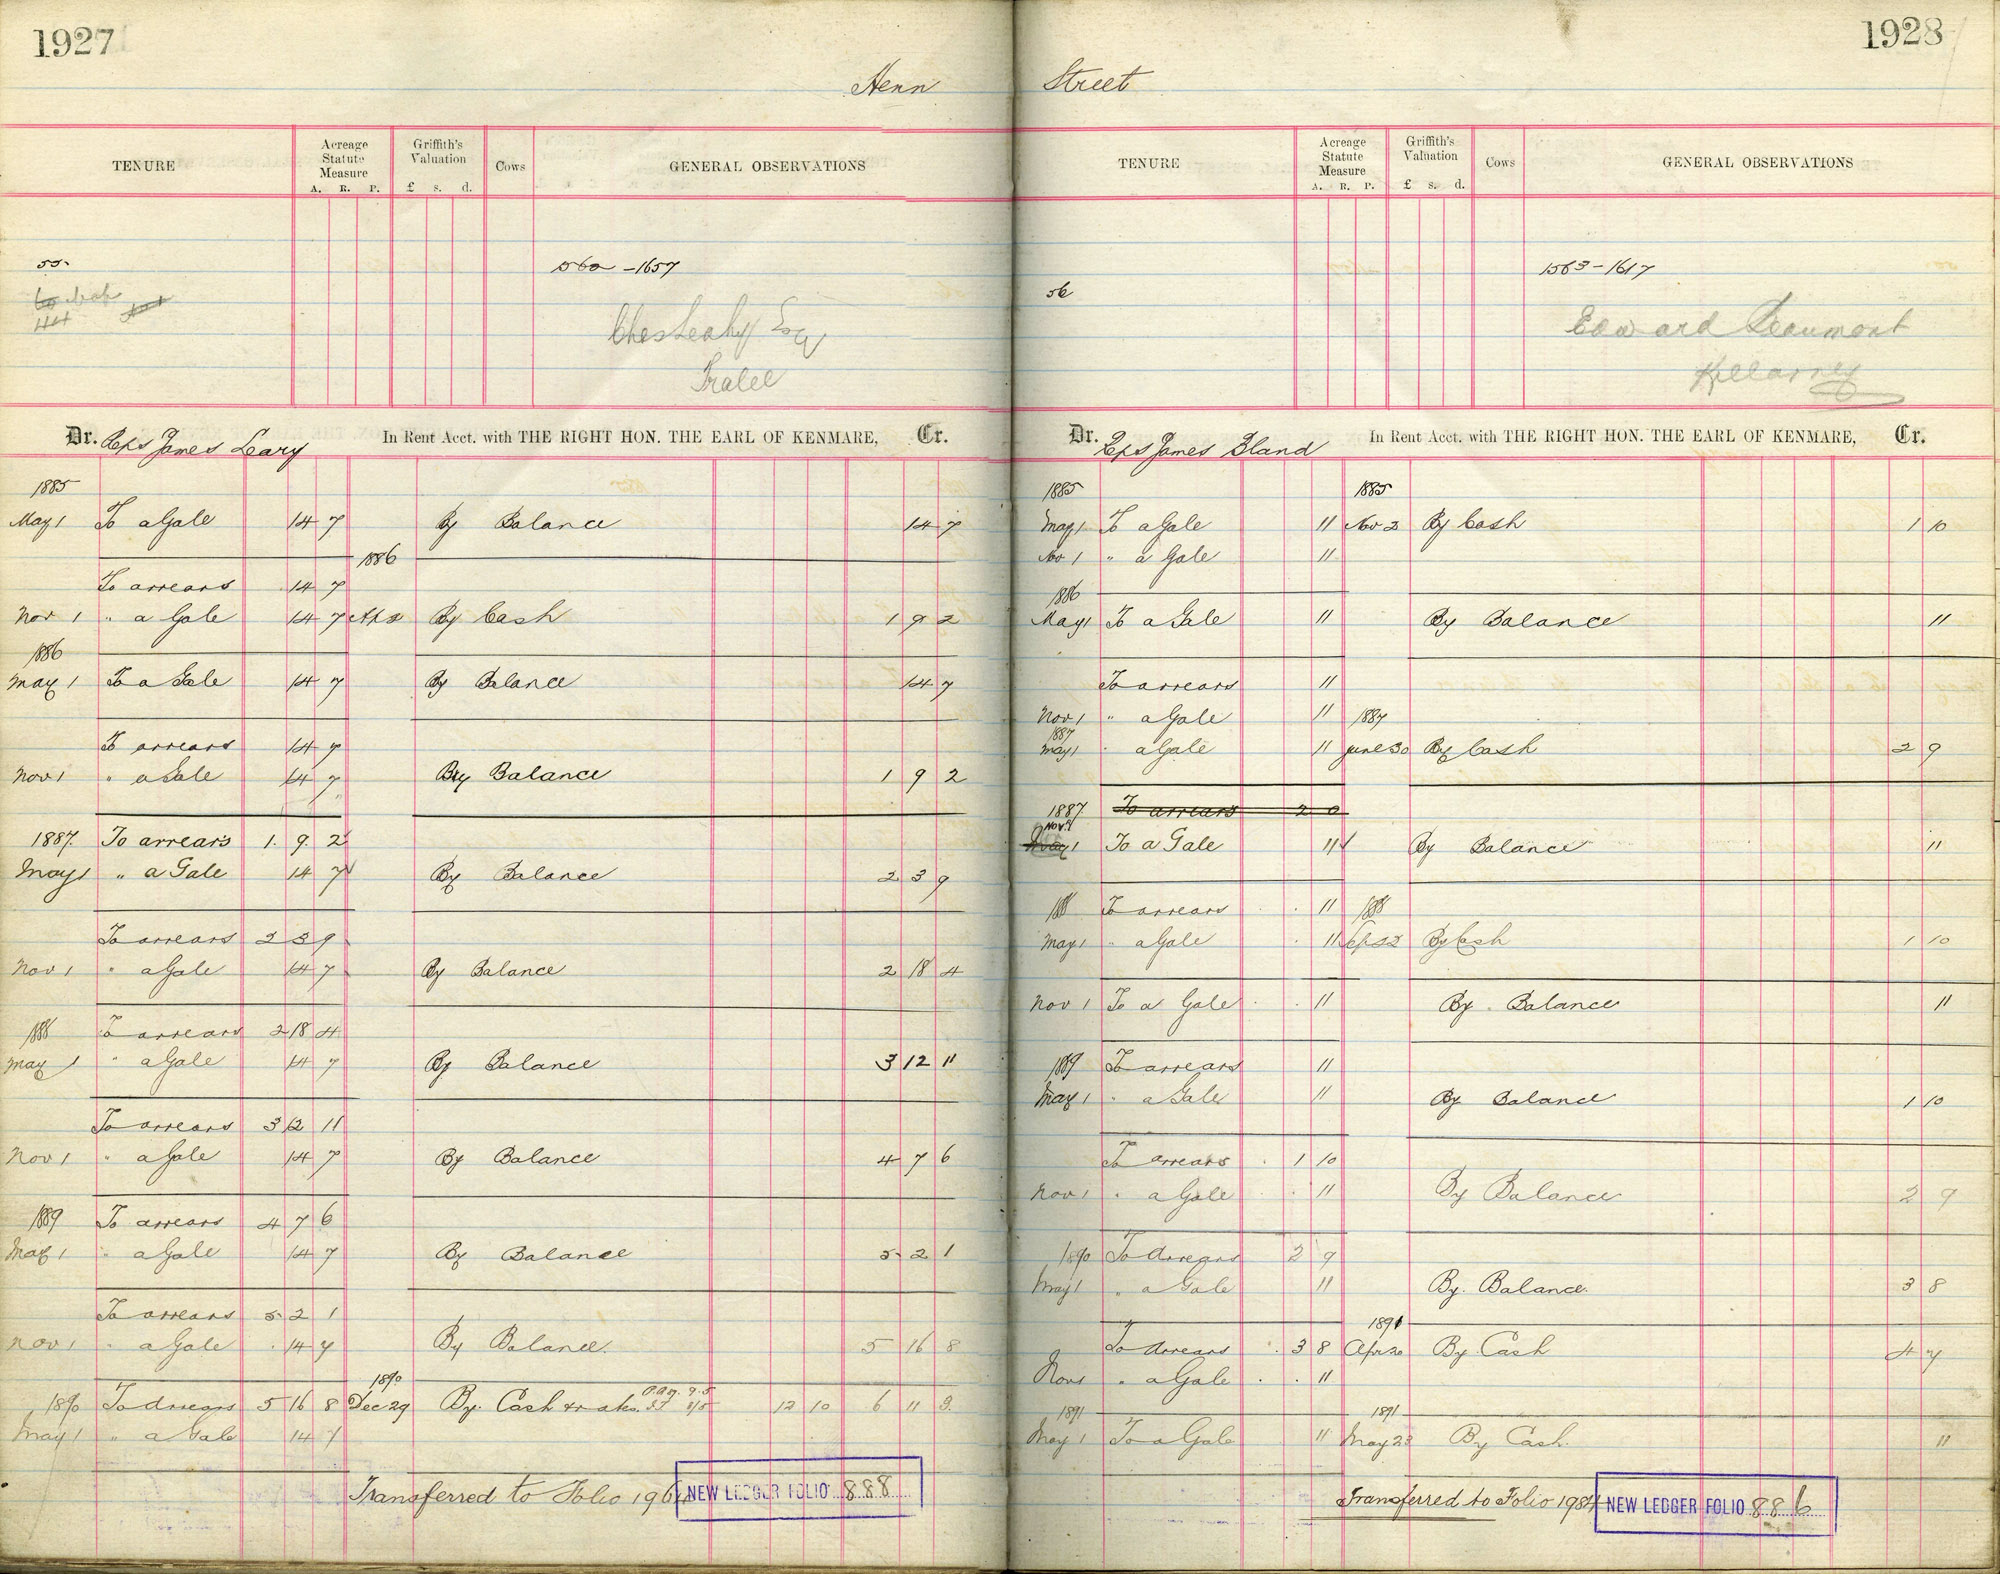 1927
Henn
TENURE
Acreage Statute Measure
A. R. P.
Griffith's Valuation
£ s. d.
Cows
GENERAL OBSERVATIONS
55
560-1657
44
Chas Leahy Esq
Tralee
Dr. Reps James Leary In Rent Acct. with THE RIGHT HON. THE EARL OF KENMARE, Cr.
1885
May 1 To a Gale 14 7 By Balance 14 7
1886
To arrears 14 7
Nov 1 " a Gale 14 7 By Cash 1 9 2
1886
May 1 To a Gale 14 7 By Balance 14 7
To arrears 14 7
Nov 1 " a Gale 14 7 By Balance 1 9 2
1887. To arrears 1. 9. 2
May 1 " a Gale 14 7 By Balance 2 3 9
To arrears 2 3 9
Nov 1 " a Gale 14 7 By Balance 2 18 4
1888 To arrears 2 18 4
May 1 " a Gale 14 7 By Balance 3 12 11
To arrears 3 12 11
Nov 1 " a Gale 14 7 By Balance 4 7 6
1889 To arrears 4 7 6
May 1 " a Gale 14 7 By Balance 5 2 1
To arrears 5 2 1
Nov 1 " a Gale 14 7 By Balance. 5 16 8
1890
1890 To Arrears 5 16 8 Dec 29 By Cash 12 10 6 11 3
May 1 " a Gale 14 7
Transferred to Folio 1964
NEW LEDGER FOLIO 888
1928
Street
TENURE
Acreage Statute Measure
A. R. P.
Griffith's Valuation
£ s. d.
Cows
GENERAL OBSERVATIONS
1563-1617
56
Edward Beaumont
Killarney
Dr. Reps James Bland In Rent Acct. with THE RIGHT HON. THE EARL OF KENMARE, Cr.
1885 1885
May 1 To a Gale 11 Nov 2 By Cash 1 10
Nov 1 " a Gale 11
1886
May 1 To a Gale 11 By Balance 11
To arrears 11
Nov 1 " a Gale 11 1887
1887
May 1 " a Gale 11 June 30 By Cash 2 9
1887. To arrears 2 0
Nov. 1 To a Gale 11 By Balance 11
1888 To arrears 11 1888
May 1 " a Gale 11 By Cash 1 10
Nov 1 To a Gale 11 By Balance 11
1889 To arrears 11
May 1 " a Gale 11 By Balance 1 10
To arrears 1 10
Nov 1 " a Gale 11 By Balance 2 9
1890 To Arrears 2 9
May 1 " a Gale 11 By. Balance. 3 8
1891
To Arrears 3 8 Apr 20 By Cash 4 7
Nov 1 " a Gale 11
1891 1891
May 1 To a Gale 11 May 23 By Cash. 11
Transferred to Folio 1984
NEW LEDGER FOLIO 886